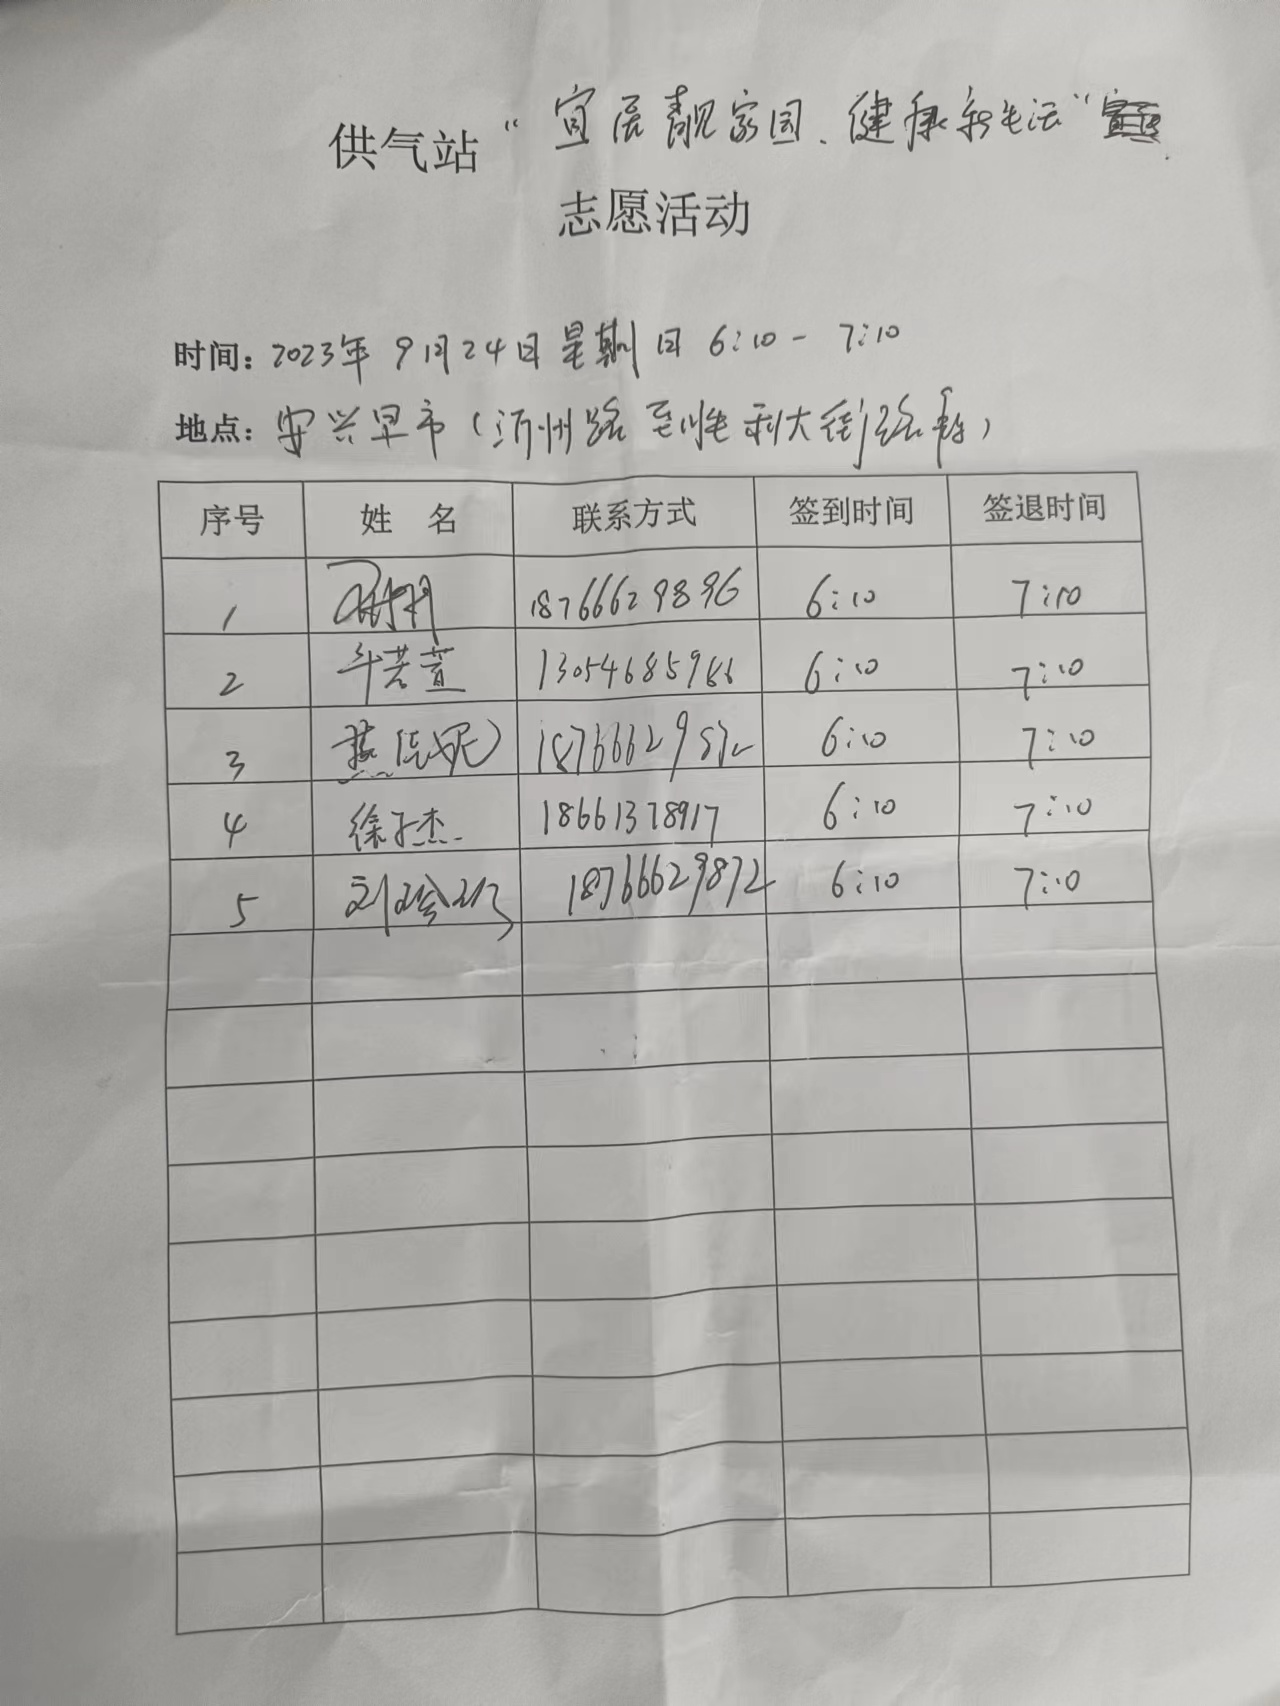 供气站“宜居靓家园、健康新生活”
志愿活动
时间：2023年9月24日星期日 6:10-7:10
地点：安兴早市（沂州路至胜利大街路段）
序号 姓 名 联系方式 签到时间 签退时间
1 18766629896 6:10 7:10
2 牟若萱 13054685986 6:10 7:10
3 6:10 7:10
4 徐子杰 18661378917 6:10 7:10
5 刘 18766629872 6:10 7:10